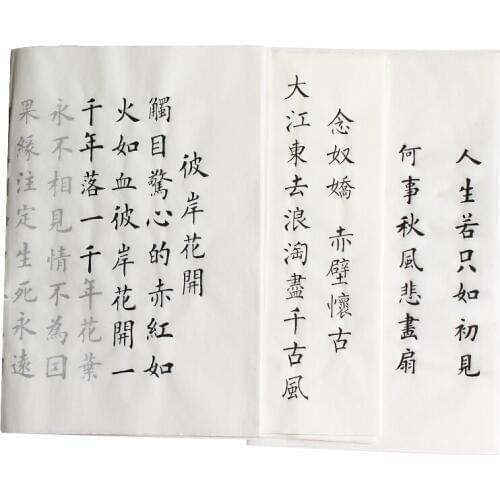 人生若只如初見
何事秋風悲畫扇
念奴嬌 赤壁懷古
大江東去浪淘盡千古風
彼岸花開
觸目驚心的赤紅如
火如血彼岸花開一
千年落一千年花葉
永不相見情不為因
果緣注定生死永遠